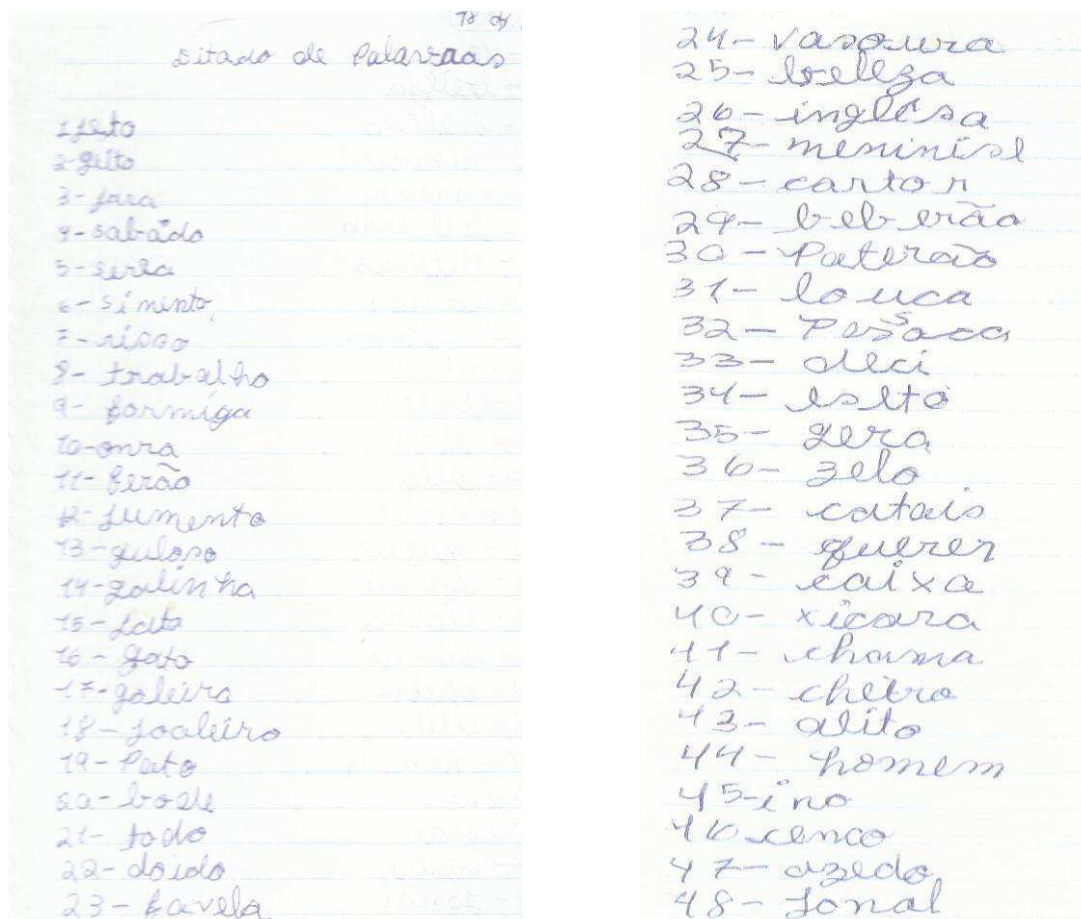 Ditado de Palavras
1 jeto
2-geito
3-jara
4-sabádo
5-serla
6-simento
7-risso
8-trabalho
9-formiga
10-onra
11-ferão
12-jumento
13-guloso
14-galinha
15-jato
16-gato
17-goleiro
18-joaleiro
19-Pato
20-bode
21-todo
22-doido
23-favela
24-vasoura
25-beleza
26-inglêsa
27-meninisl
28-cartor
29-beberão
30-Paterão
31-louca
32-Pesaca
33-deci
34-eslto
35-gera
36-zelo
37-catais
38-querer
39-caixa
40-xicara
41-chama
42-cheiro
43-alito
44-homem
45-ino
46 cenco
47-azedo
48-Jonal